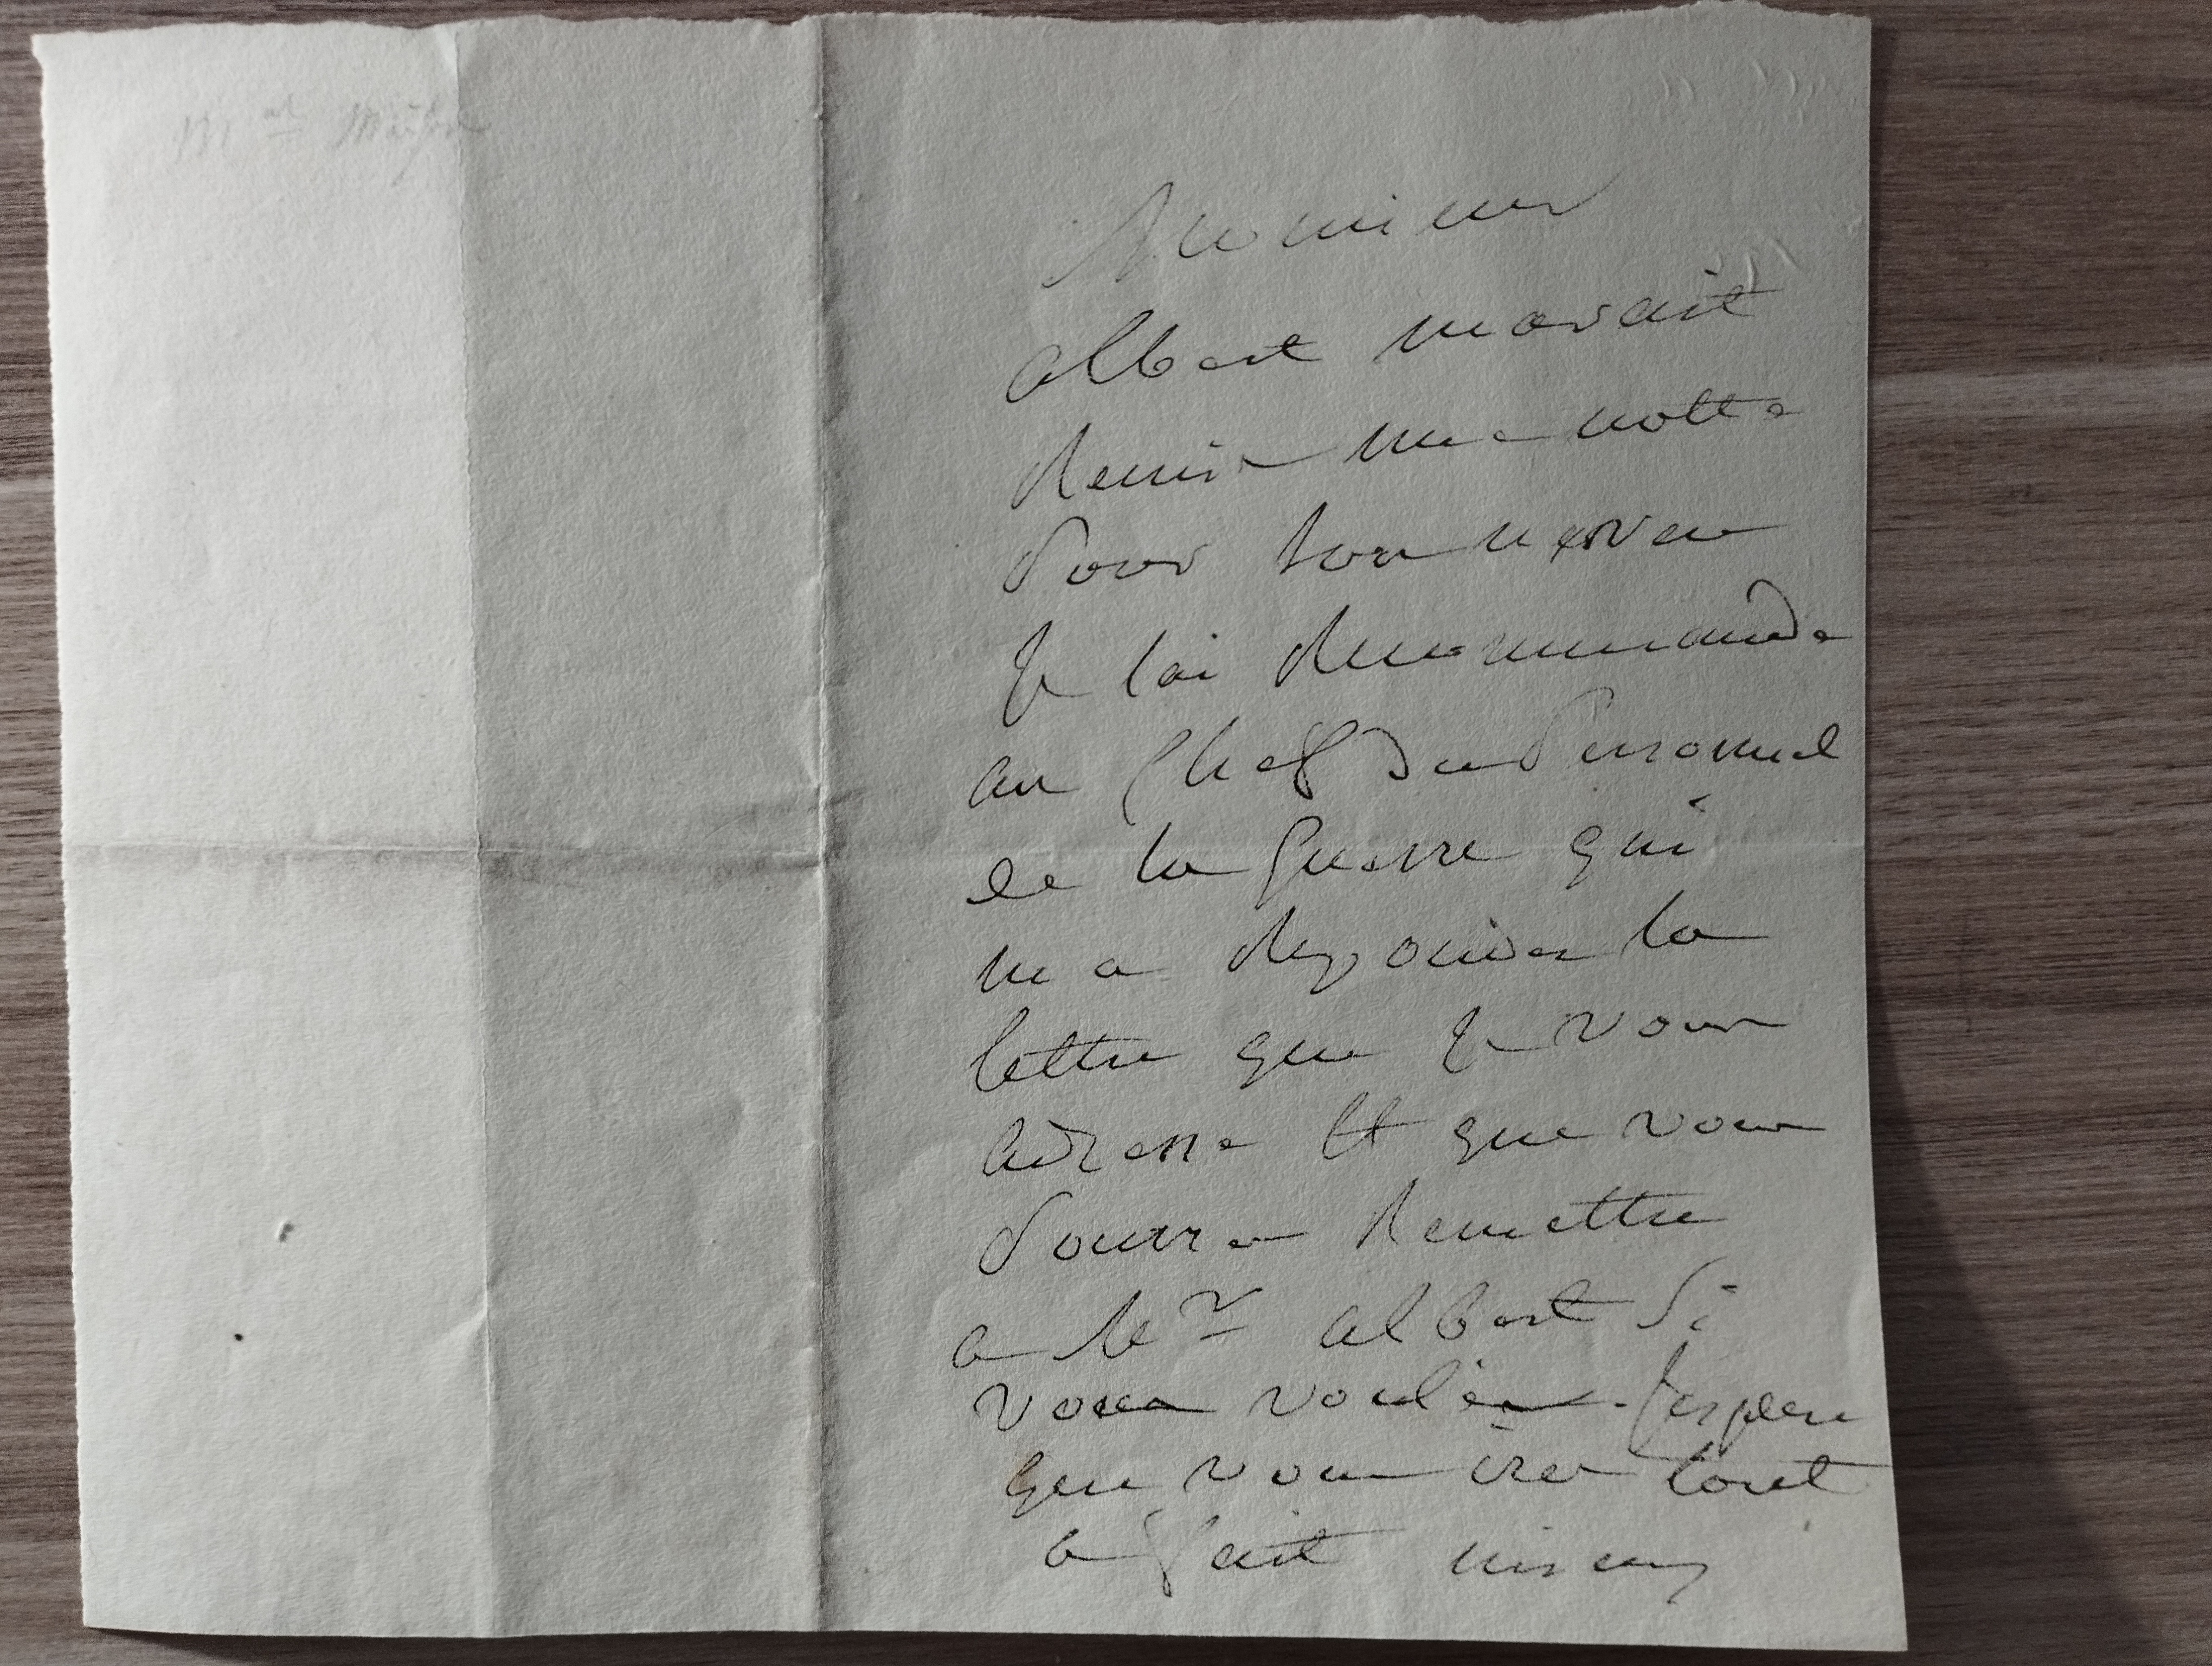 Monsieur
albert mavait
Remis une notte
Pour son neveu
Je lai Recommande
au Chef du Personnel
de la Guerre qui
ma Repondu la
lettre que Je vous
adresse Et que vous
Pourrez Remettre
a Mr albert Si
vous voulez. J'espere
que vous irez tout
a fait mieux